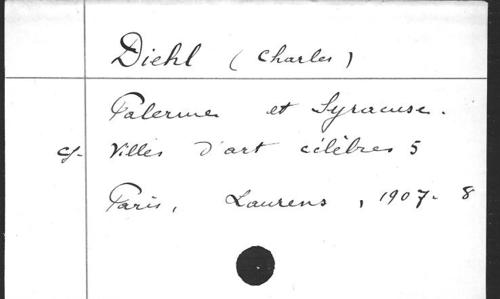 Diehl (Charles)
Palerme et Syracuse.
cf. Villes d'art célèbres 5
Paris, Laurens, 1907. 8